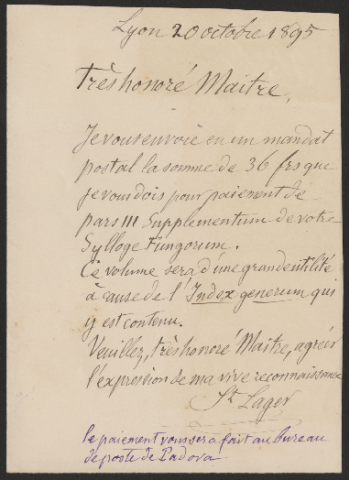 Lyon 20 octobre 1895
Très honoré Maitre,
Je vous envoie en un mandat
postal la somme de 36 frs que
je vous dois pour paiement de
pars III Supplementum de votre
Sylloge Fungorum.
Ce volume sera d'une grande utilité
à cause de l'Index generum qui
y est contenu.
Veuillez, très honoré Maitre, agréer
l'expression de ma vive reconnaissance
St Lager
Le paiement vous sera fait au bureau
de poste de Padova.